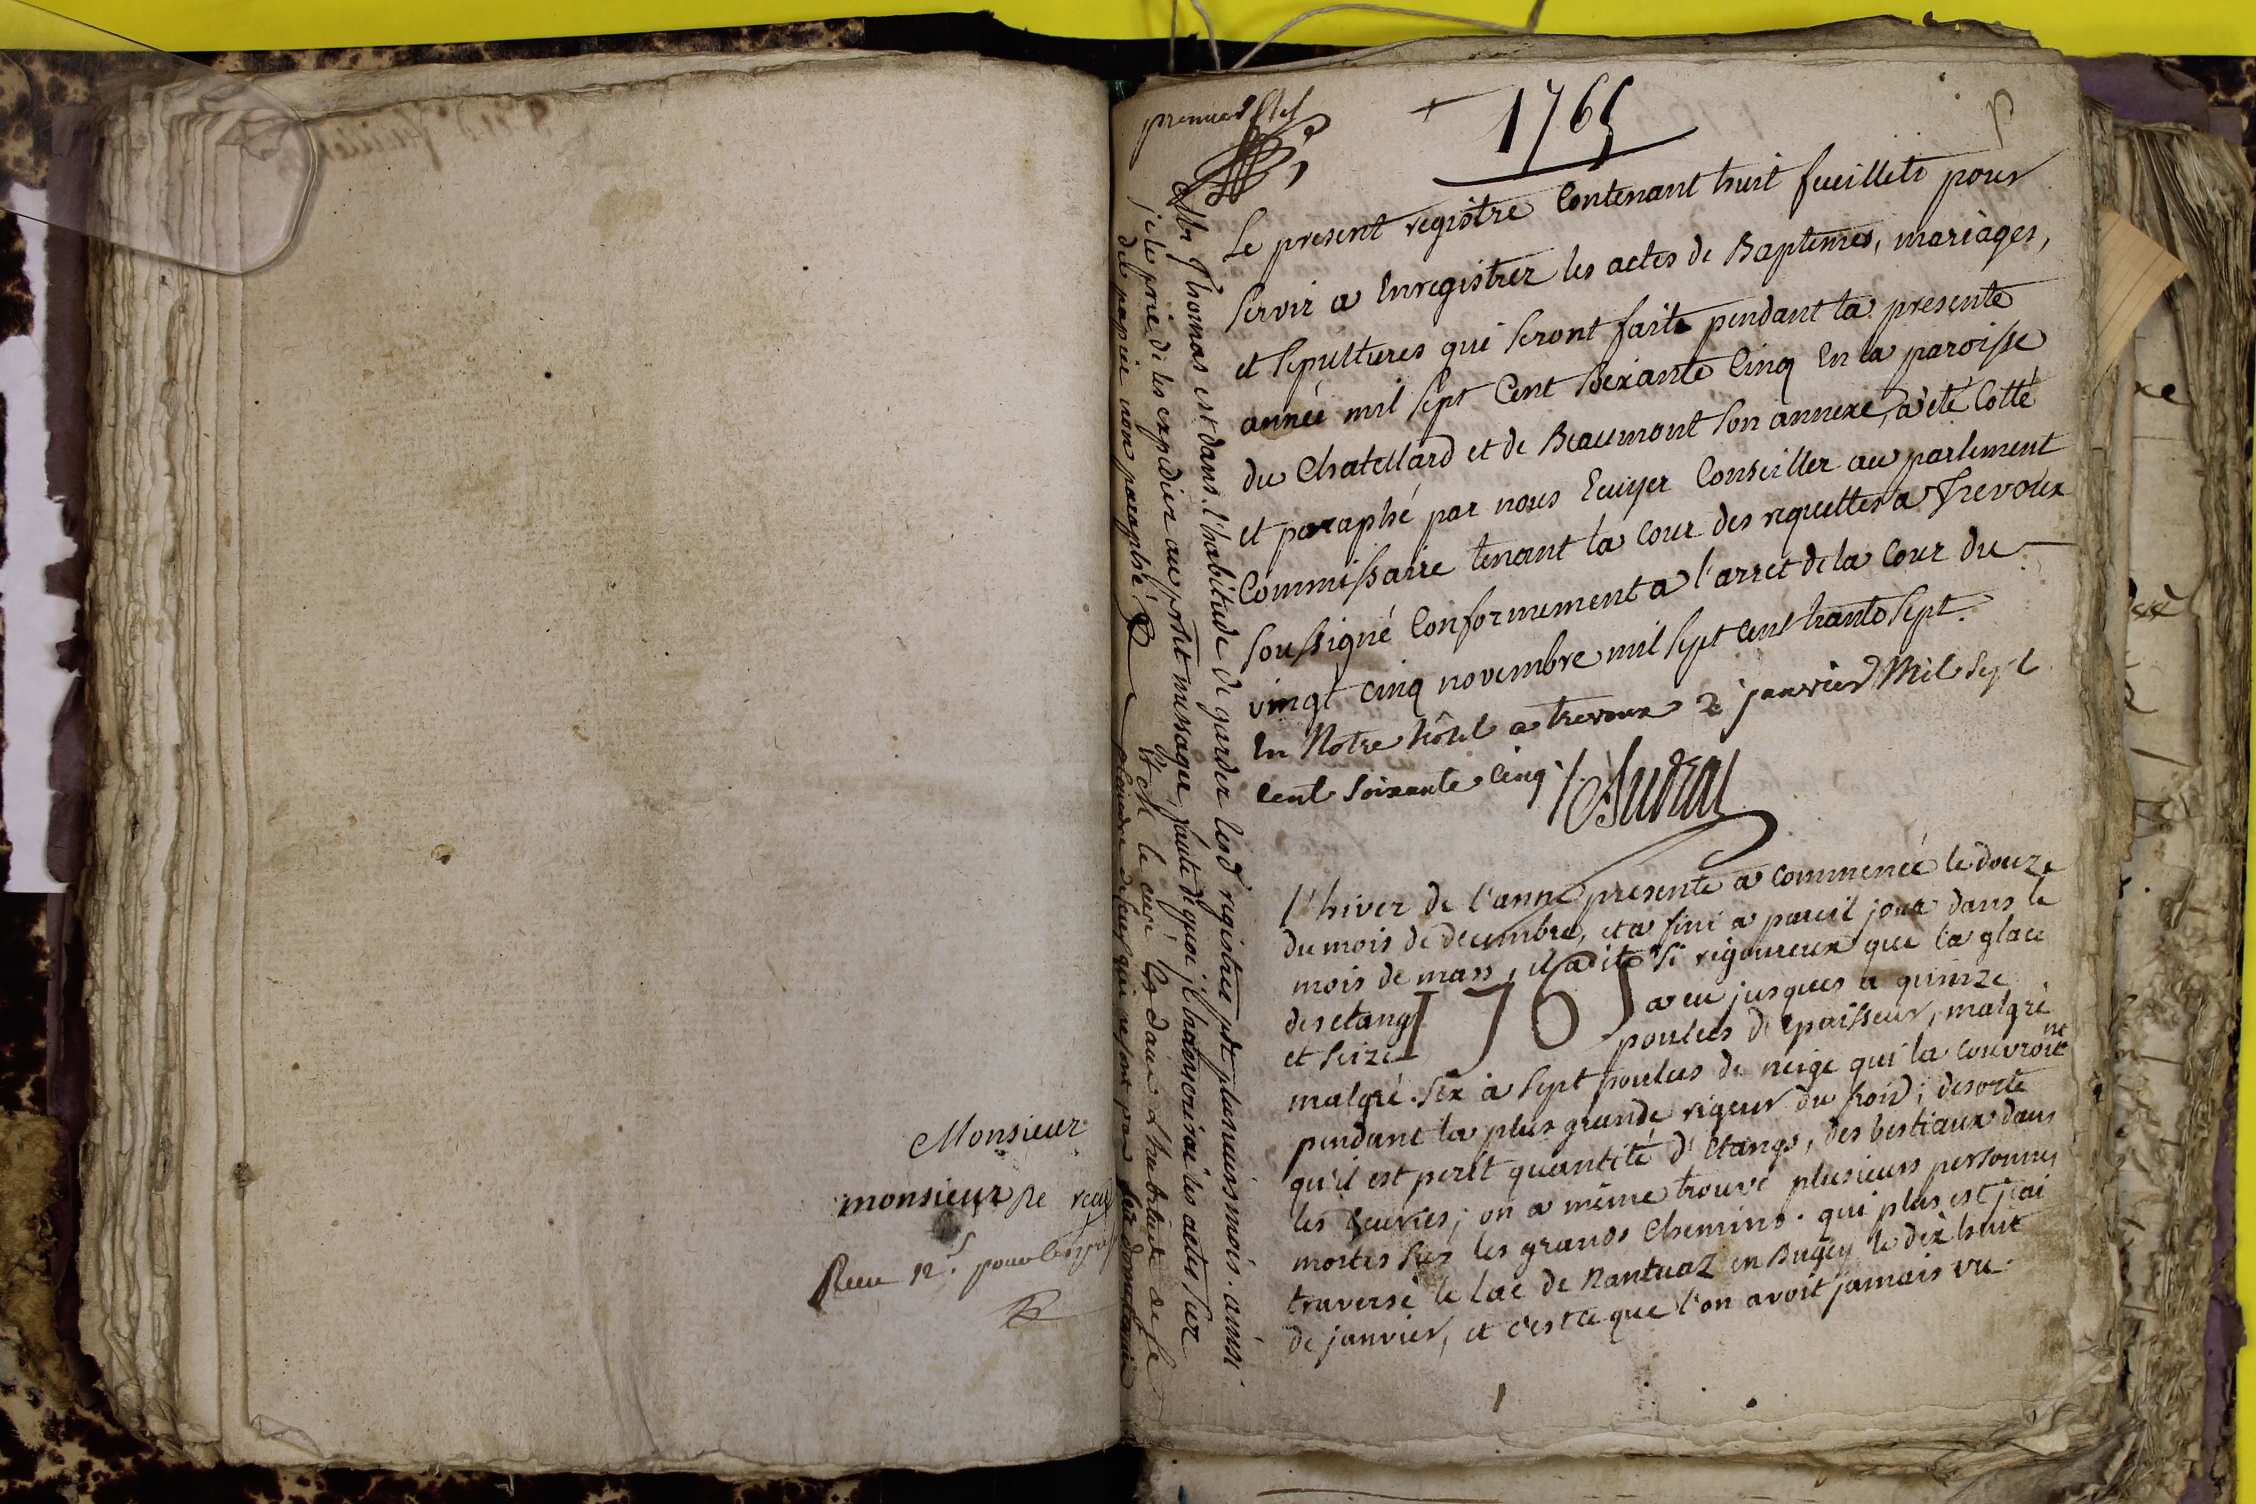 Monsieur
monsieur De
Recu 12.s pour
premier
1765
Le present registre Contenant huit feuillets pour
servir a Enregistrer les actes de Baptemes, mariages,
et sepultures qui seront faits pendant la presente
année mil sept Cent soixante Cinq En la paroisse
du Chatellard et de Beaumont son annexe, a eté Cotté
et paraphé par nous Ecuyer Conseiller au parlement
Commissaire tenant la Cour des requettes a Trevoux
soussigné Conformement a l'arret de la Cour du
vingt cinq novembre mil sept cent trante sept.
En Notre hôtel a trevoux 2 janvier Mil sept
cent soixante Cinq
l'hiver de l'anne presente a commencé le douze
du mois de decembre, et a fini a pareil jour dans le
mois de mars, il a eté si rigoureux que la glace
des etangs a eu jusques a quinze
1765
et seize poulces d'epaisseur, malgré
malgré six à sept poulces de neige qui la couvroient
pendant la plus grande rigeur du froid; desorte
qu'il est perit quantité d'Etangs, des bestiaux dans
les Ecuries; on a même trouvé plusieurs personnes
mortes sur les grands Chemins. qui plus est j'ai
traversé le lac de Nantuaz en Bugey le dix huit
de janvier, et c'est ce que l'on avoit jamais vu.
Thomas est dans l'habitude de garder lesd registres pdt plusieurs mois. ainsi
je le prie de les expedier au pnt message, faute de quoi je transcrirai les actes sur
du papier non paraphé
Et Mr le curé Est dans l'habitude de se
plaindre de ceux qui ne sont pas